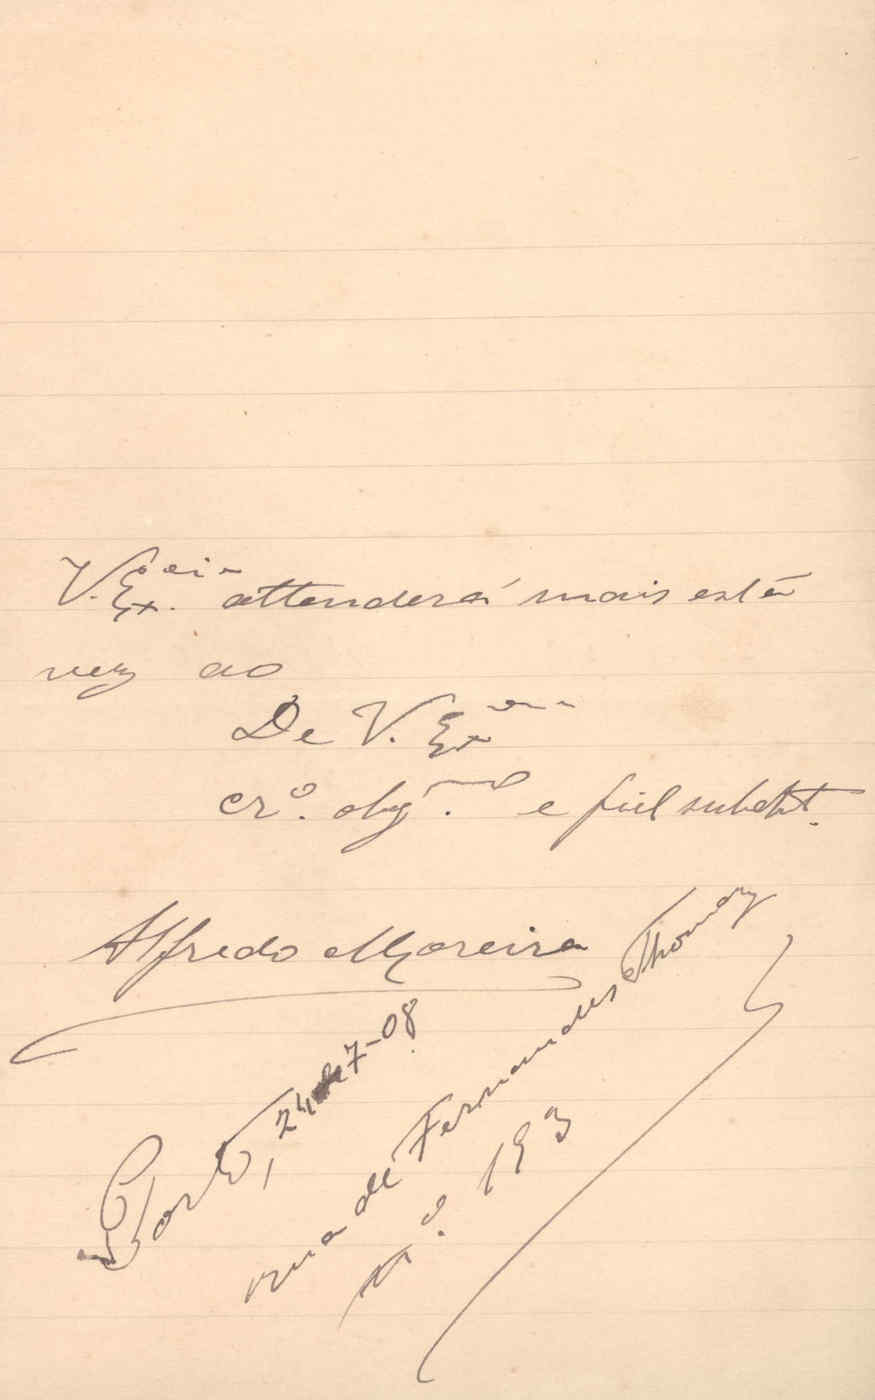 V. Ex.cia attenderá mais esta
vez ao
De V. Exma
cr.º obg.mo e fiel subdt.
Alfredo Moreira
Porto, 24-7-08
rua de Fernandes Thomaz
n.º 193